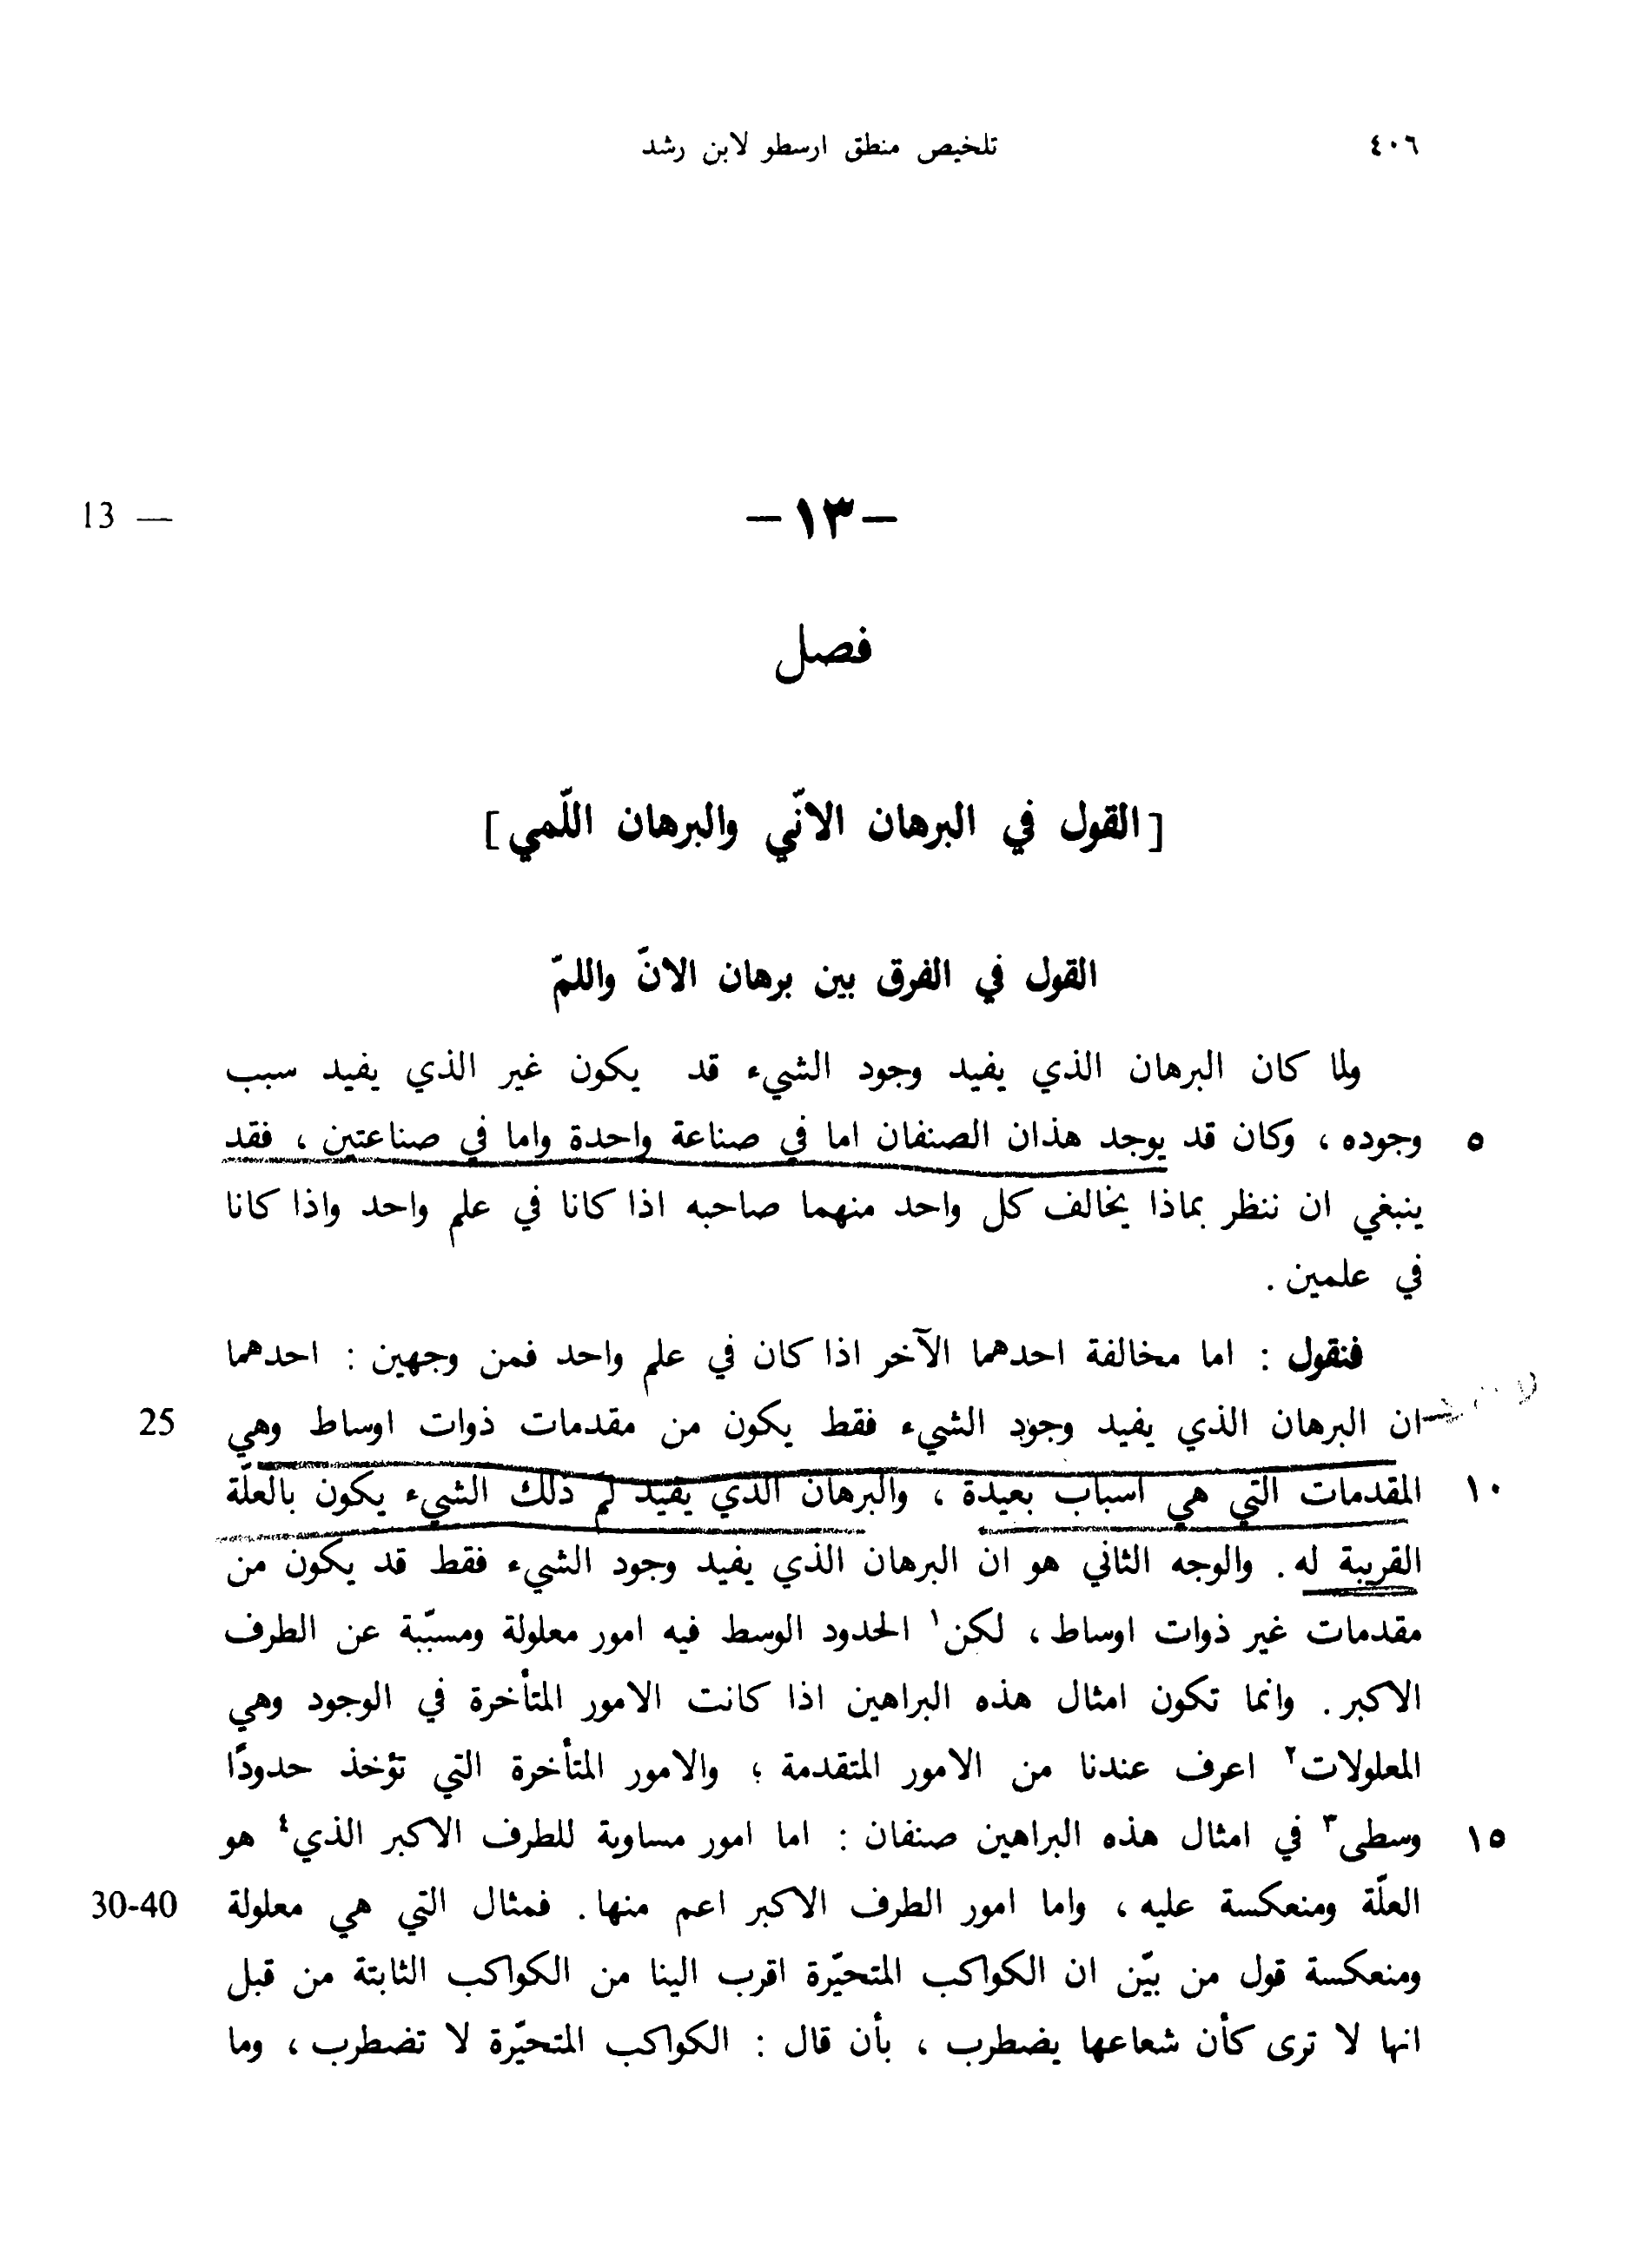 ٤٠٦
تلخيص منطق ارسطو لابن رشد
13 —
— ١٣ —
فصل
[القول في البرهان الانّي والبرهان اللّمي]
القول في الفرق بين برهان الانّ واللمّ
ولما كان البرهان الذي يفيد وجود الشيء قد يكون غير الذي يفيد سبب
٥ وجوده ، وكان قد يوجد هذان الصنفان اما في صناعة واحدة واما في صناعتين ، فقد
ينبغي ان ننظر بماذا يخالف كل واحد منهما صاحبه اذا كانا في علم واحد واذا كانا
في علمين .
فنقول : اما مخالفة احدهما الآخر اذا كان في علم واحد فمن وجهين : احدهما
ان البرهان الذي يفيد وجود الشيء فقط يكون من مقدمات ذوات اوساط وهي 25
١٠ المقدمات التي هي اسباب بعيدة ، والبرهان الذي يفيد لم ذلك الشيء يكون بالعلّة
القريبة له . والوجه الثاني هو ان البرهان الذي يفيد وجود الشيء فقط قد يكون من
مقدمات غير ذوات اوساط ، لكن١ الحدود الوسط فيه امور معلولة ومسبّبة عن الطرف
الاكبر . وانما تكون امثال هذه البراهين اذا كانت الامور المتأخرة في الوجود وهي
المعلولات٢ اعرف عندنا من الامور المتقدمة ؛ والامور المتأخرة التي تؤخذ حدودًا
١٥ وسطى٣ في امثال هذه البراهين صنفان : اما امور مساوية للطرف الاكبر الذي٤ هو
العلّة ومنعكسة عليه ، واما امور الطرف الاكبر اعم منها . فمثال التي هي معلولة 30-40
ومنعكسة قول من بيّن ان الكواكب المتحيّرة اقرب الينا من الكواكب الثابتة من قبل
انها لا ترى كأن شعاعها يضطرب ، بأن قال : الكواكب المتحيّرة لا تضطرب ، وما